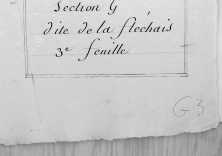 Section G
dite de la flechais
3e feuille
G3